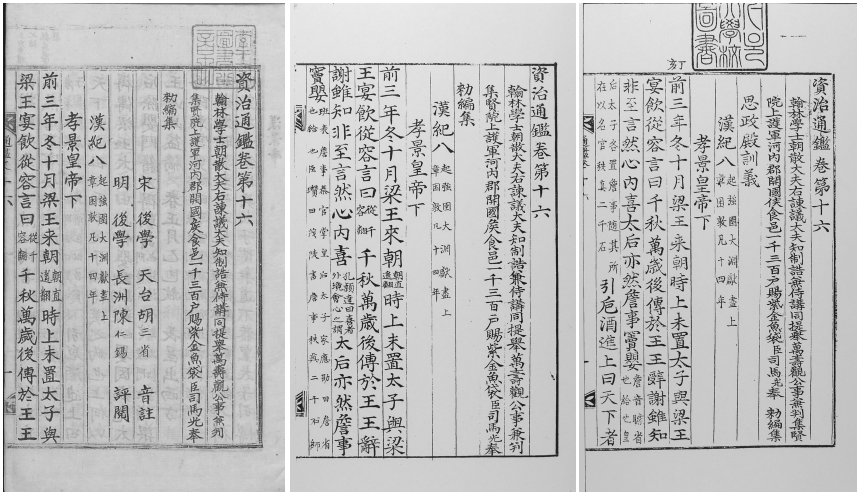 資治通鑑卷第十六
翰林學士朝散大夫右諫議大夫知制誥兼侍講同提舉萬壽觀公事兼判
集賢院上護軍河內郡開國侯食邑一千三百戶賜紫金魚袋臣司馬光奉
勑編集
宋後學天台胡三省音註
明後學長洲陳仁錫評閱
漢紀八起強圉大淵獻盡上章困敦凡十四年
孝景皇帝下
前三年冬十月梁王來朝朝直遥翻時上未置太子與
梁王宴飲從容言曰從千容翻千秋萬歲後傳於王王
資治通鑑卷第十六
翰林學士朝散大夫右諫議大夫知制誥兼侍講同提舉萬壽觀公事兼判
集賢院上護軍河內郡開國侯食邑一千三百戶賜紫金魚袋臣司馬光奉
勑編集
漢紀八起強圉大淵獻盡上章困敦凡十四年
孝景皇帝下
前三年冬十月梁王來朝朝直遥翻時上未置太子與梁
王宴飲從容言曰從千容翻千秋萬歲後傳於王王辭
謝雖知非至言然心內喜孔穎達曰喜者外境會心之謂太后亦然詹事
竇嬰班表詹事秦官掌皇后太子家應劭曰詹省也給也臣瓚曰茂陵書詹事秩真二千石師
資治通鑑卷第十六
翰林學士朝散大夫右諫議大夫知制誥兼侍講同提舉萬壽觀公事兼判集賢
院上護軍河內郡開國侯食邑一千三百戶賜紫金魚袋臣司馬光奉勑編集
思政殿訓義
漢紀八起強圉大淵獻盡上章困敦凡十四年
孝景皇帝下
前三年冬十月梁王来朝時上未置太子與梁王
宴飲從容言曰千秋萬歲後傳於王王辭謝雖知
非至言然心內喜太后亦然詹事竇嬰詹音瞻省也給也皇
后太子各置詹事隨其所在以名官秩真二千石引巵酒進上曰天下者